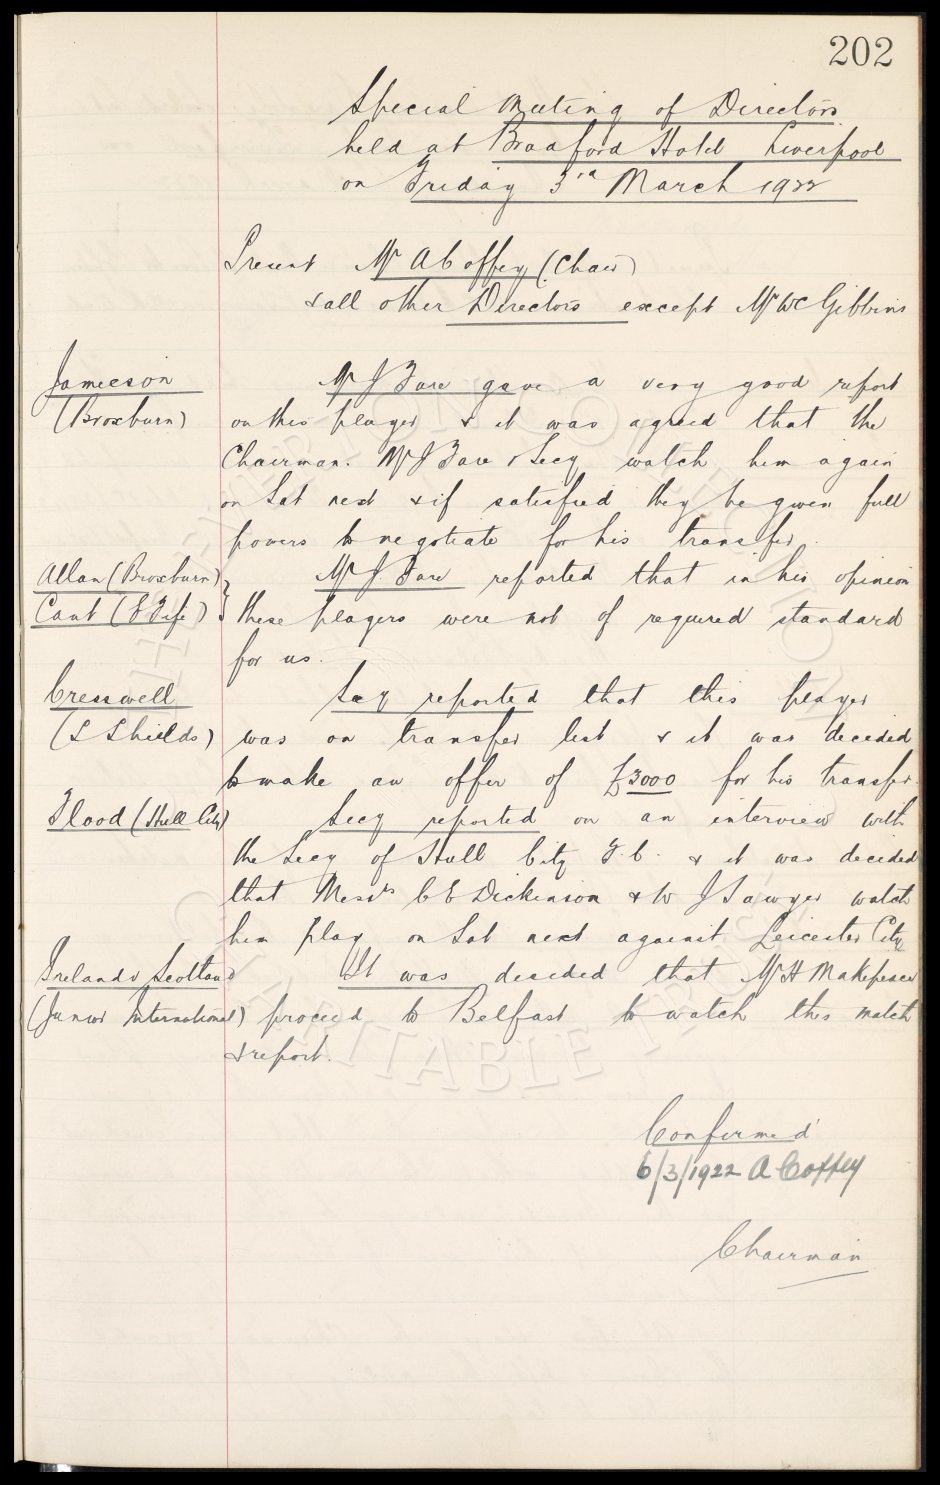 202
Special Meeting of Directors
held at Bradford Hotel Liverpool
on Friday 3rd March 1922
Present Mr A Coffey (Chair)
& all other Directors except Mr W C Gibbins
Jamieson Mr J Fare gave a very good report
(Broxburn) on this player & it was agreed that the
Chairman. Mr J Fare & Secy watch him again
on Sat next & if satisfied they be given full
powers to negotiate for his transfer.
Allan (Broxburn) Mr J. Fare reported that in his opinion
Cant (E Fife) } these players were not of required standard
for us.
Cresswell Secy reported that this player
(S Shields) was on transfer list & it was decided
to make an offer of £3000 for his transfer.
Flood (Hull City) Secy reported on an interview with
the Secy of Hull City F.C. & it was decided
that Messrs C E Dickinson & W J Sawyer watch
him play on Sat next against Leicester City
Ireland v Scotland It was decided that Mr H Makepeace
(Junior International) proceed to Belfast to watch this match
& report.
Confirmed
6/3/1922 A Coffey
Chairman
THE EVERTON COLLECTION
CHARITABLE TRUST